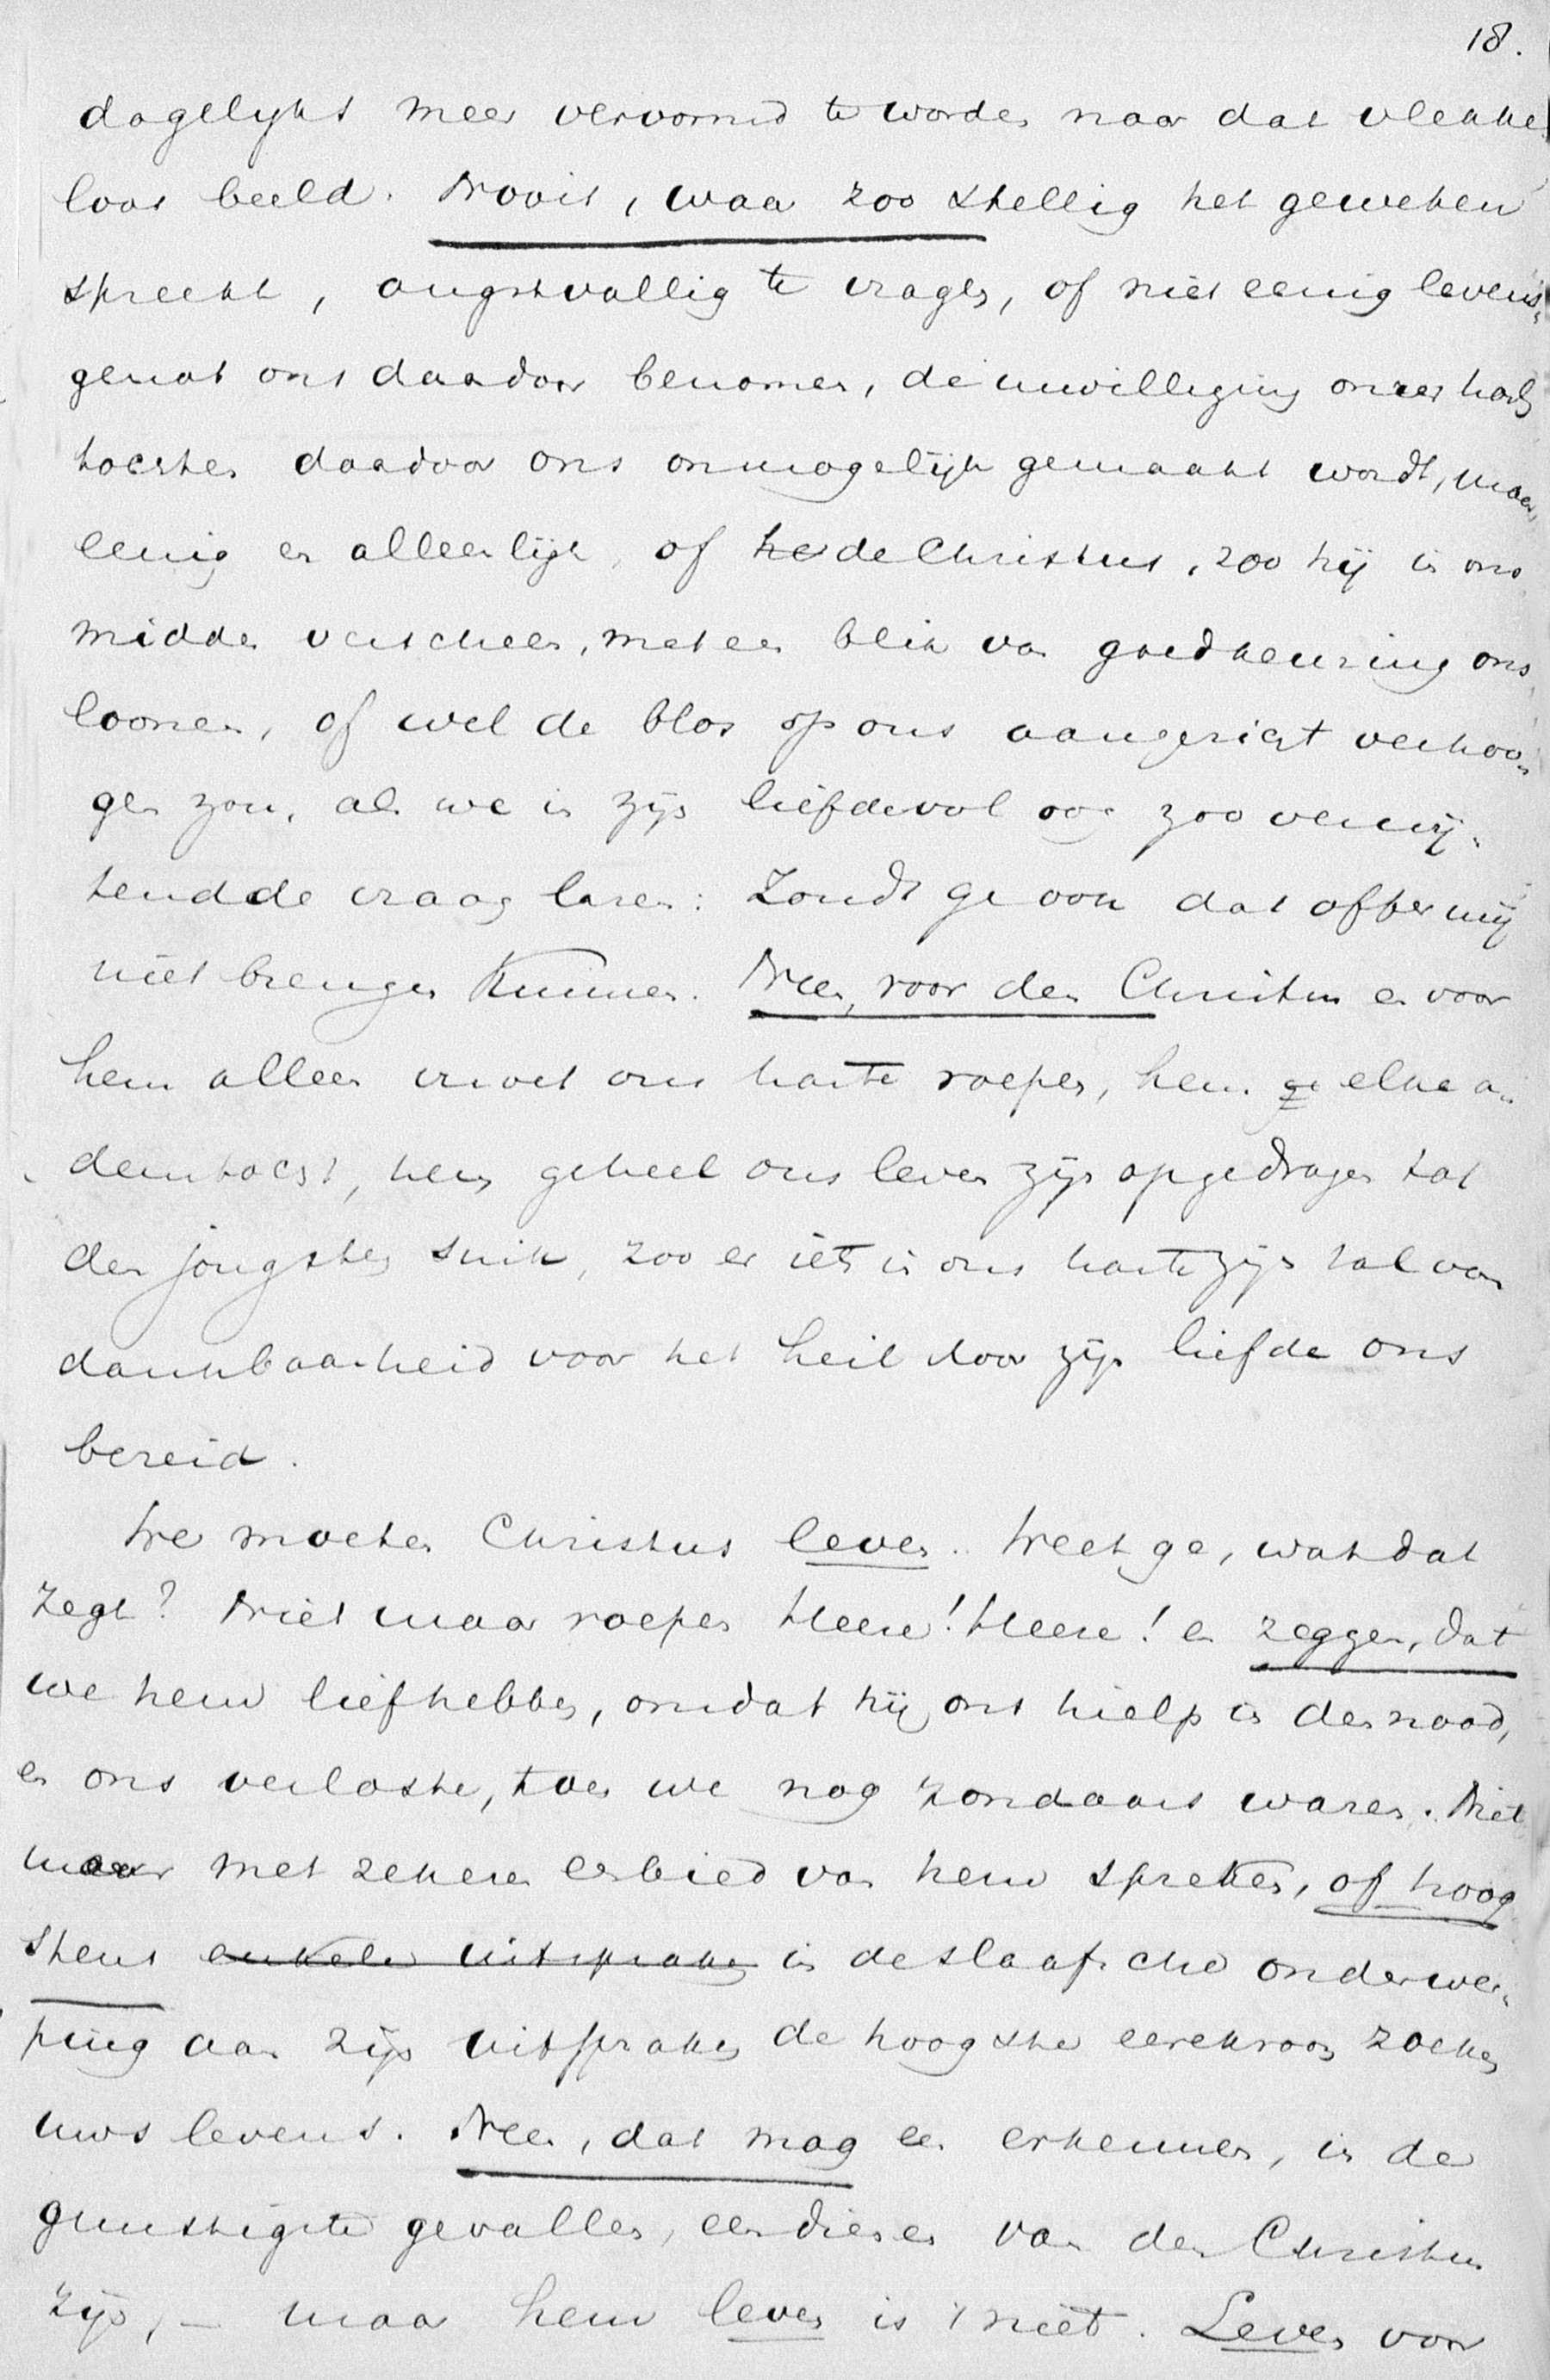 18.
dagelyks meer vervormd te worden naar dat vlekke¬
loos beeld. Nooit, waar zoo stellig het geweten
spreekt, angstvallig te vragen, of niet eenig levens¬
genot ons daardoor benomen, de inwilliging onzer harts
tochten daardoor ons onmogelijk gemaakt wordt, maar
eenig en alleenlijk, of he de Christus, zoo hij in ons
midden verscheen, met een blik van goedkeuring ons
loonen, of wel de blos op ons aangezigt verhoo¬
gen zou, als we in zijn liefdevol oog zoo verwij¬
tend de vraag lazen: Zoudt ge ook dat offer mij
niet brengen kunnen. Neen, voor den Christus en voor
hem alleen moet ons harte roepen, hem ge elke a¬
demtocht, hem geheel ons leven zijn opgedragen tot
den jongsten snik, zoo er iets in ons harte zijn zal van
dankbaarheid voor het heil door zijn liefde ons
bereid.
We moeten Christus leven. Weet ge, wat dat
zegt? Niet maar roepen Heere! Heere! en zeggen, dat
we hem liefhebben, omdat hij ons hielp in den nood,
en ons verloste, toen we nog zondaars waren. Niet
maar met zekeren eerbied van hem spreken, of hoog
stens enkele uitspraken in de slaafsche onderwer¬
ping aan zijn uitspraken de hoogste eerekroon zoeken
uws levens. Neen, dat mag een erkennen, in de
gunstigste gevallen, een dienen van den Christus
zijn, – maar hem leven is 't niet. Leven voor